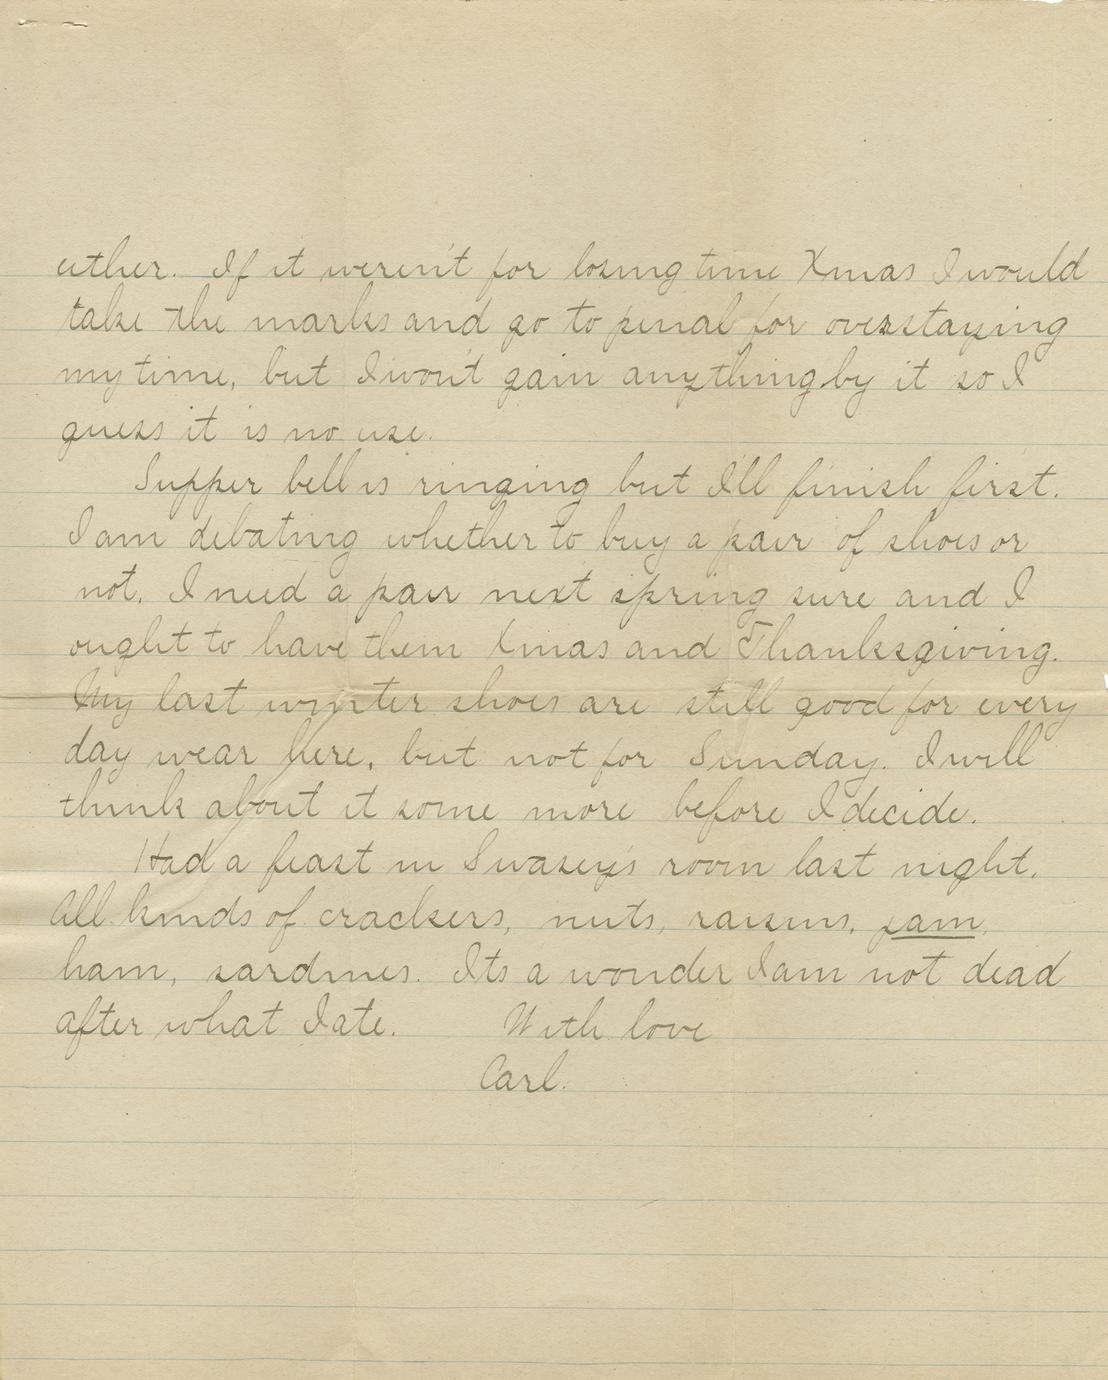 either. If it weren't for losing time Xmas I would
take the marks and go to penal for overstaying
my time, but I won't gain anything by it so I
guess it is no use.
Supper bell is ringing but I'll finish first.
I am debating whether to buy a pair of shoes or
not. I need a pair next spring sure and I
ought to have them Xmas and Thanksgiving.
My last winter shoes are still good for every
day wear here, but not for Sunday. I will
think about it some more before I decide.
Had a feast in Swasey's room last night.
All kinds of crackers, nuts, raisins, jam,
ham, sardines. Its a wonder I am not dead
after what I ate. With love
Carl.